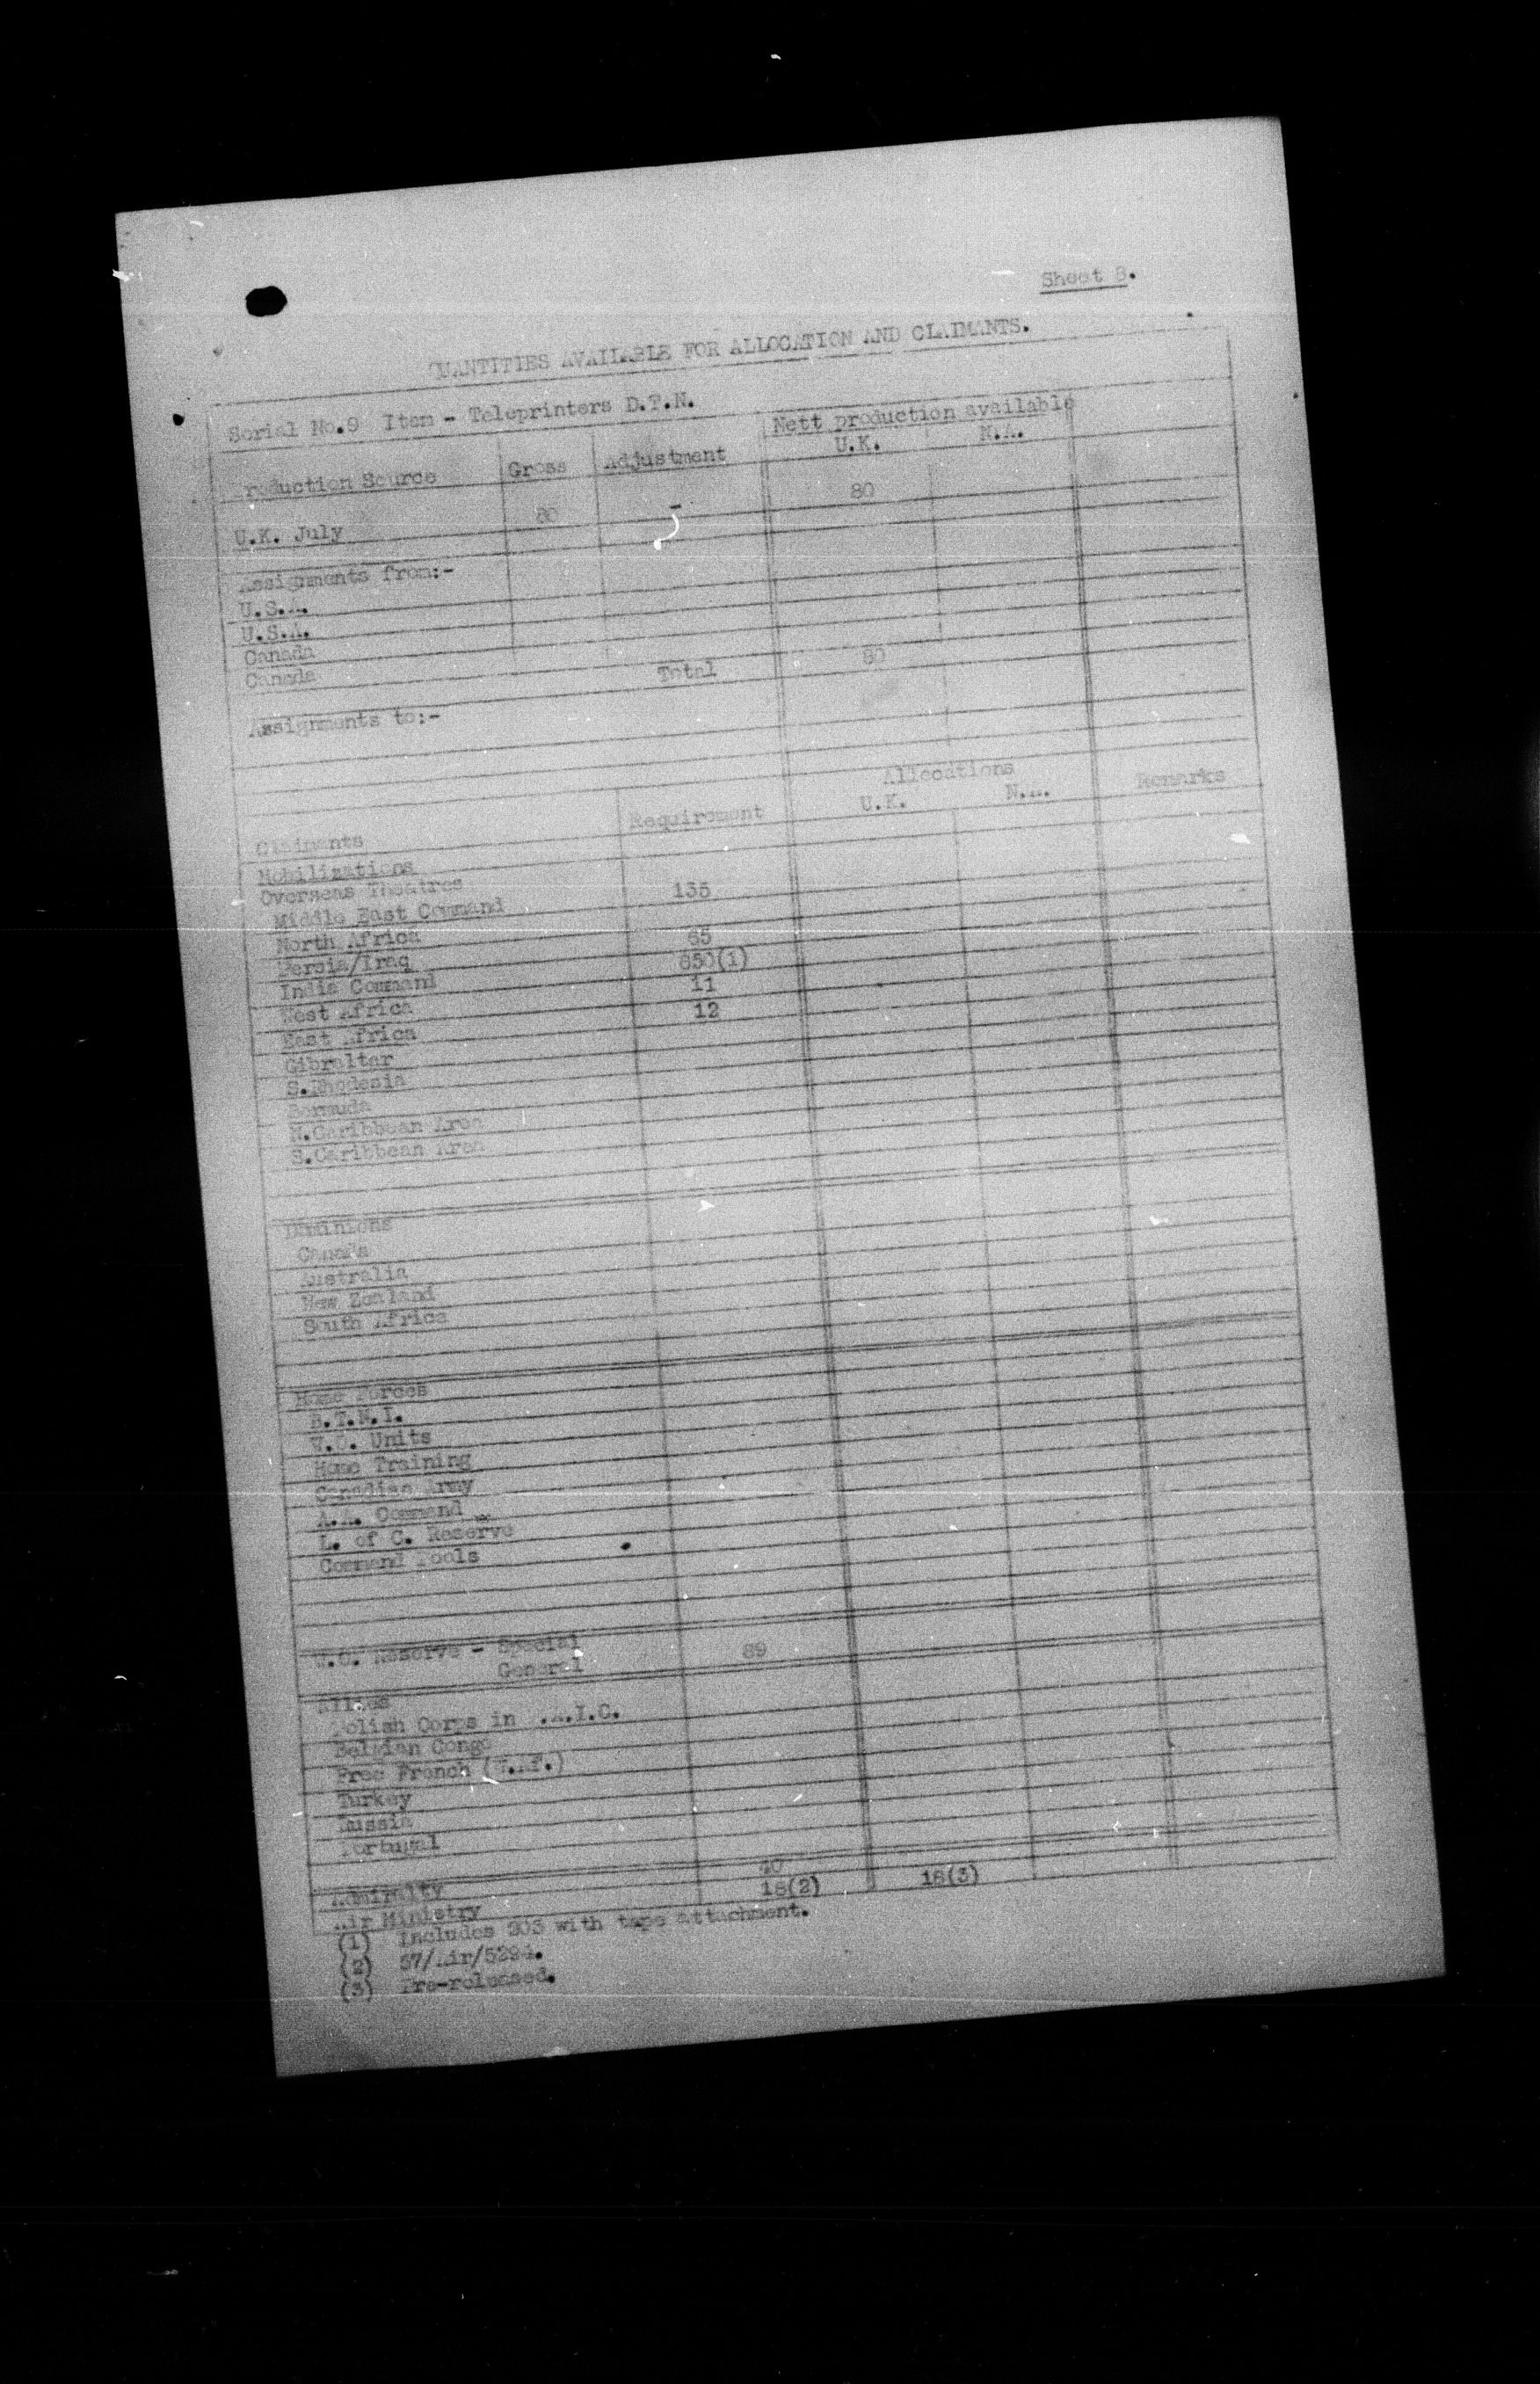 Sheet 8.
QUANTITIES AVAILABLE FOR ALLOCATION AND CLAIMANTS.
Serial No.9 Item - Teleprinters D.T.N.
Production Source Gross Adjustment Nett production available
U.K. N.A.
U.K. July 80 - 80
Assignments from:-
U.S.A.
U.S.A.
Canada
Canada
Total 80
Assignments to:-
Claimants Requirement Allocations Remarks
U.K. N.A.
Mobilizations
Overseas Theatres
Middle East Command 135
North Africa
Persia/Iraq 65
India Command 850(1)
West Africa 11
East Africa 12
Gibraltar
S.Rhodesia
Bermuda
N.Caribbean Area
S.Caribbean Area
Dominions
Canada
Australia
New Zealand
South Africa
Home Forces
B.T.N.I.
W.O. Units
Home Training
Canadian Army
A.A. Command
L. of C. Reserve
Command Pools
W.O. Reserve - Special 89
General
Allies
Polish Corps in .A.I.C.
Belgian Congo
Free French (W.Af.)
Turkey
Russia
Portugal
Admiralty 40
Air Ministry 16(2) 16(3)
(1) Includes 203 with tape attachment.
(2) 57/Air/5294.
(3) Pre-released.